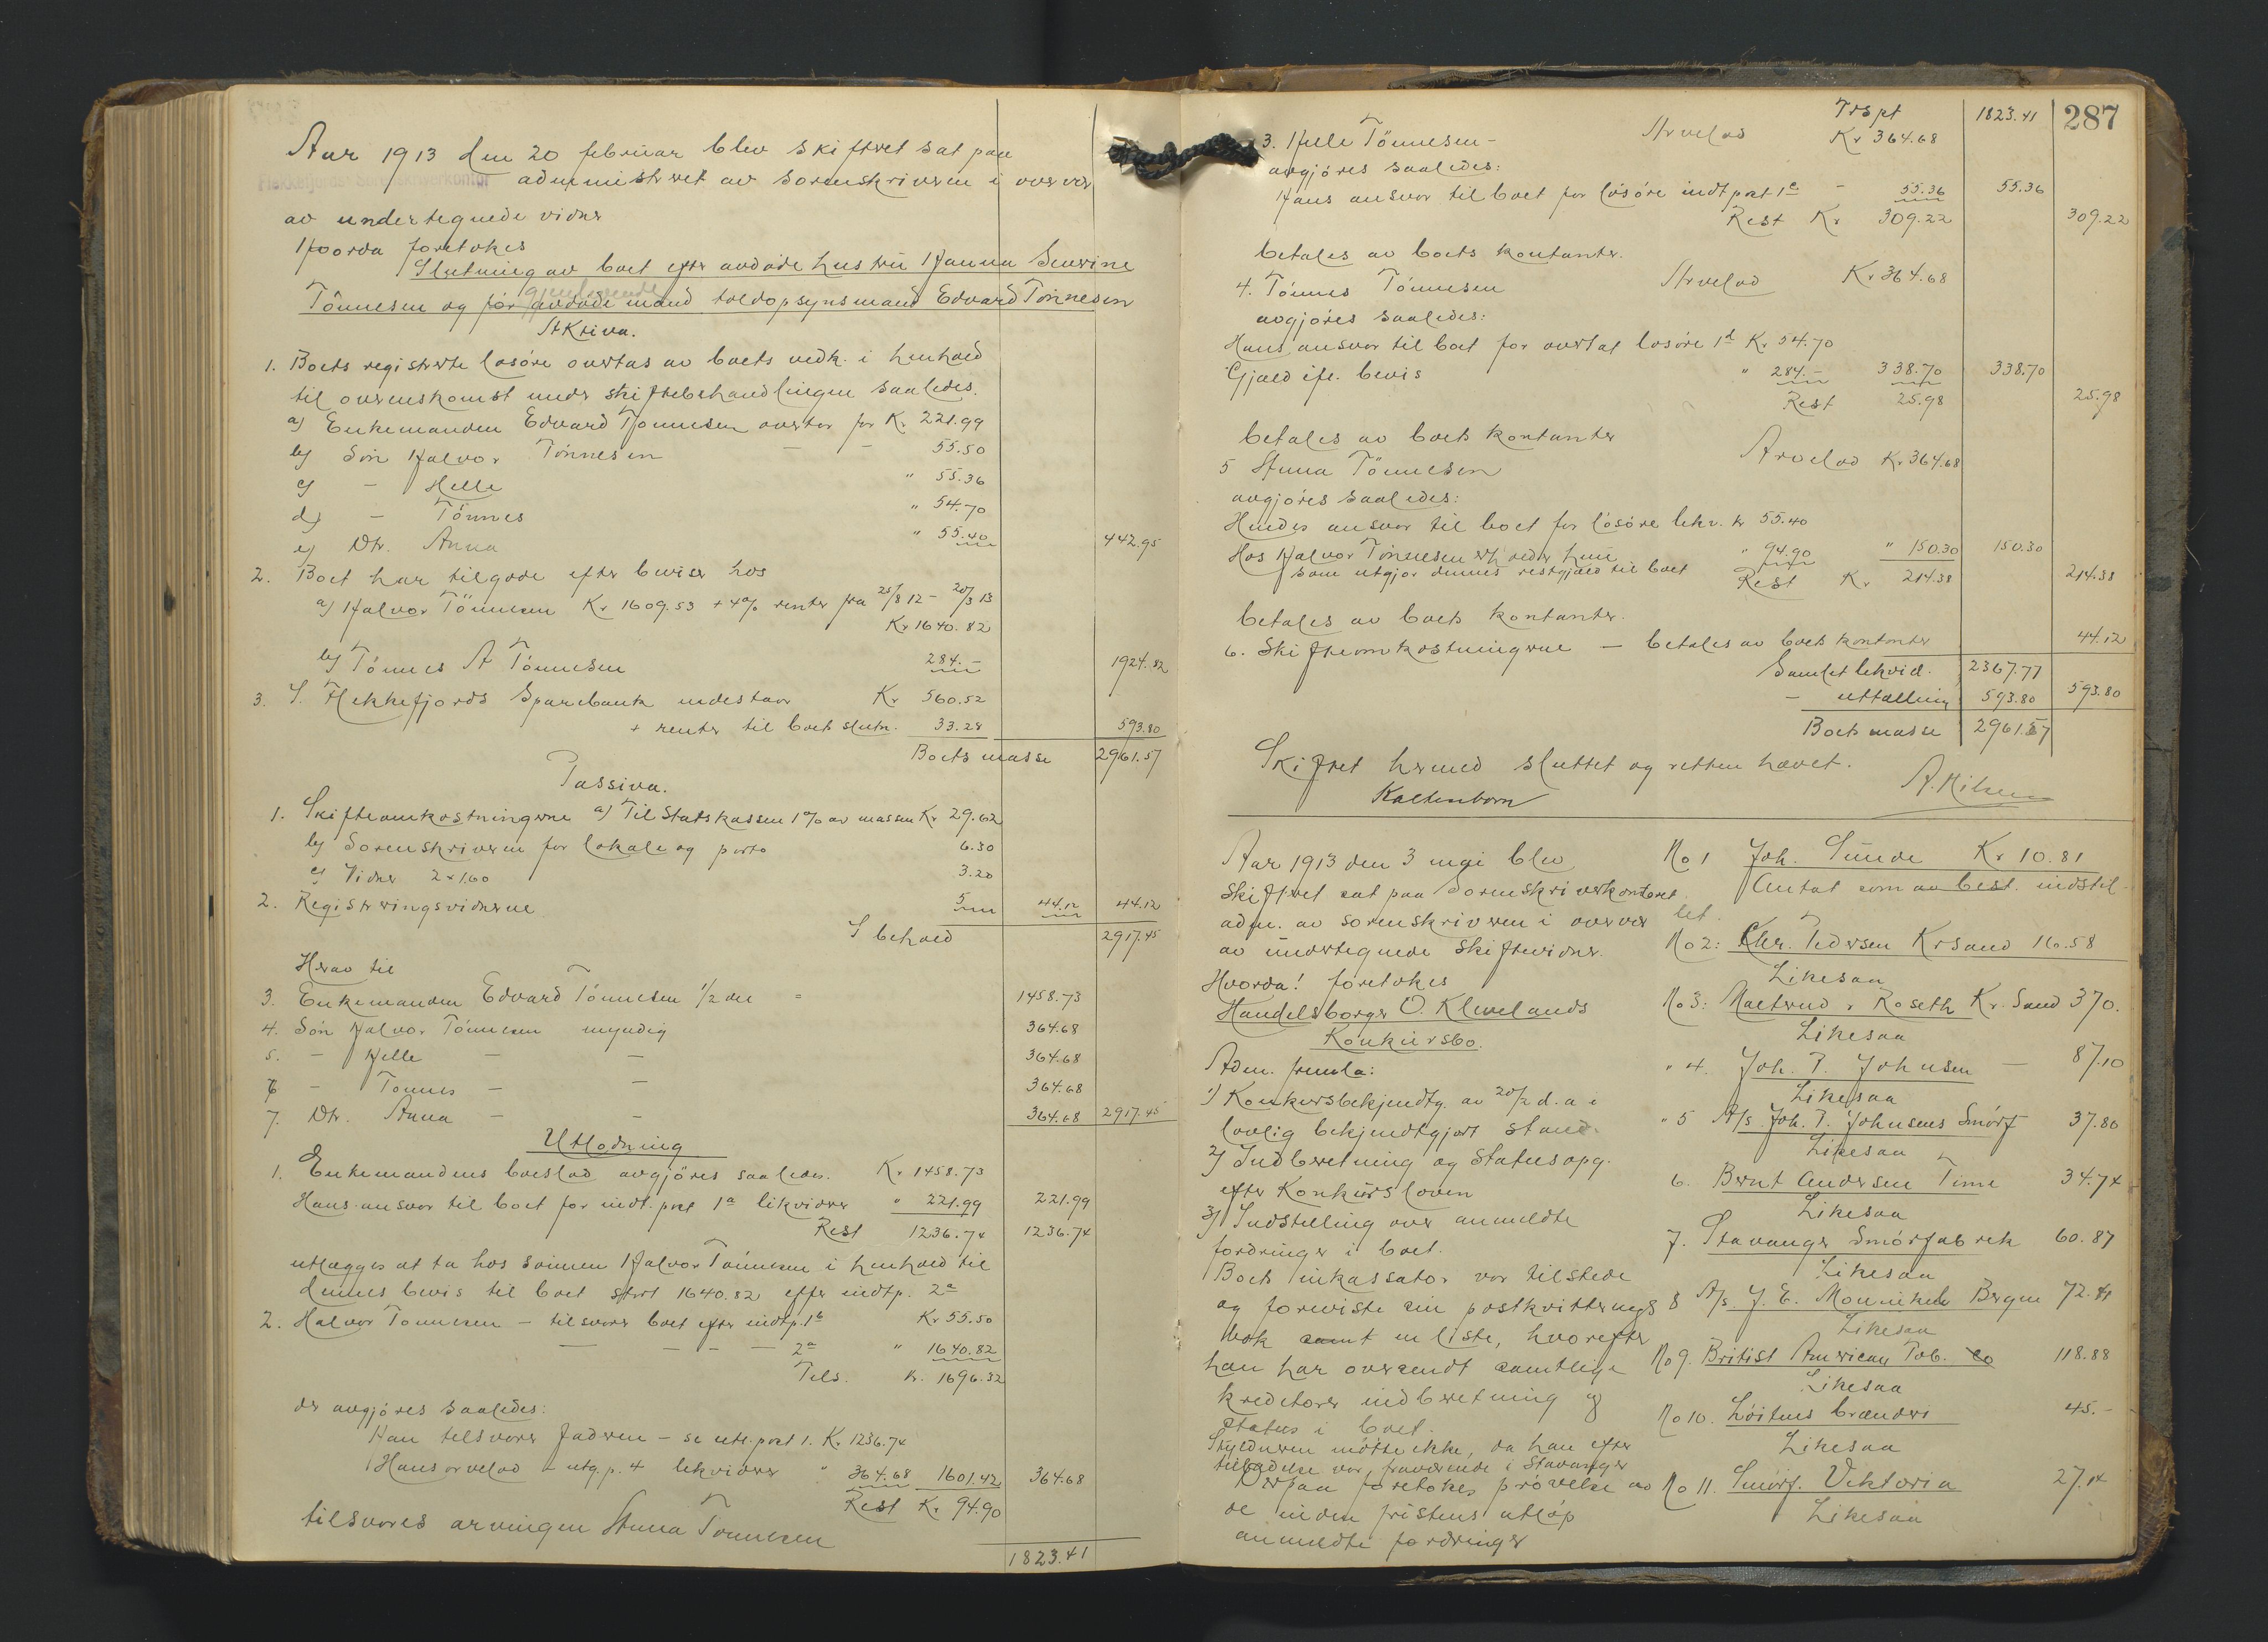 Aar 1913 den 20 februar blev skiftret sat paa
Flekkefjords Sorenskriverkontor administreret av sorenskriveren i overvær
av undertegnede vidner
Hvorda foretokes
Slutning av boet efter avdøde hustru Hanna Severine
gjenlevende
Tönnesen og før avdøde mand toldopsynsmand Edvard Tönnesen
Aktiva.
1. Boets registrerte løsøre overtas av boets vedk. i henhold
til overenskomst under skiftebehandlingen saaledes.
a) Enkemanden Edvard Tönnesen overtar for Kr. 221.99
b) Søn Halvor Tönnesen — - 55.50
c) - Helle " 55.36
d) - Tönnes " 54.70
e) Dtr. Anna " 55.40 442.95
2. Boet har tilgode efter beviser hos
a) Halvor Tönnesen Kr 1609.53 + 4% renter fra 25/8 12 - 20/3 13
Kr 1640.82
b) Tönnes A Tönnesen 284.- 1924.82
3. I Flekkefjords Sparebank indestaar Kr 560.52
+ renter til boets slutn. 33.28 593.80
Boets masse 2961.57
Passiva.
1. Skifteomkostningerne a) Til Statskassen 1% av massen Kr 29.62
b) Sorenskriveren for lokale og porto 6.30
c) Vidner 2 x 1.60 3.20
2. Registreringsvidnerne 5 44.12 44.12
I behold 2917.45
Herav til
3. Enkemanden Edvard Tönnesen 1/2 del = 1458.73
4. Søn Halvor Tönnesen myndig 364.68
5. - Helle — — 364.68
6 - Tönnes — — 364.68
7. Dtr. Anna — — 364.68 2917.45
Utlodning
1. Enkemandens boeslod avgjöres saaledes. Kr 1458.73
Hans ansvar til boet for indt. post 1a likviderer " 221.99 221.99
Rest 1236.74 1236.74
utlægges at ta hos sönnen Halvor Tönnesen i henhold til
dennes bevis til boet stort 1640.82 efter indtp. 2a
2. Halvor Tönnesen — tilsvarer boet efter indtp. 1b Kr 55.50
— — — — 2a " 1640.82
Tils. Kr. 1696.32
der avgjöres saaledes:
Han tilsvarer faderen — se utl. post 1. Kr 1236.74
Hans arvelod - utg. p. 4 likviderer " 364.68 1601.42 364.68
Rest Kr. 94.90
tilsvares arvingen Anna Tönnesen
1823.41
287
Trspt 1823.41
3. Helle Tönnesen - Arvelod Kr 364.68
avgjöres saaledes:
Hans ansvar til boet for løsøre indt post 1c - 55.36 55.36
Rest Kr 309.22 309.22
betales av boets kontanter.
4. Tönnes Tönnesen Arvelod Kr 364.68
avgjöres saaledes:
Hans ansvar til boet for overtat løsøre 1d Kr 54.70
Gjæld ifl. bevis " 284.- 338.70 338.70
Rest 25.98 25.98
betales av boets kontanter
5 Anna Tönnesen Arvelod Kr 364.68
avgjøres saaledes:
Hendes ansvar til boet for løsøre likv. kr 55.40
Hos Halvor Tönnesen erholder hun " 94.90 " 150.30 150.30
som utgjør dennes restgjæld til boet Rest Kr. 214.38 214.38
betales av boets kontanter.
6. Skifteomkostningerne — betales av boets kontanter 44.12
Samlet likvid. 2367.77
— uttælling 593.80 593.80
Boets masse 2961.57
Skiftet hermed sluttet og retten hævet.
Kaltenborn A. Nilsen
Aar 1913 den 3 mai blev
skiftret sat paa Sorenskriverkontoret
adm. av sorenskriveren i overvær
av undertegnede skiftevidner.
Hvorda! foretokes
Handelsborger O. Klevelands
Konkursbo.
Adm. fremla:
1) Konkursbekjendtg. av 20/2 d. a i
lovlig bekjendtgjort stand.
2) Indberetning og Statusopg.
efter Konkursloven
3) Indstilling over anmeldte
fordringer i boet.
Boets inkassator var tilstede
og foreviste sin postkvitterings
bok samt en liste, hvorefter
han har oversendt samtlige
kreditorer indberetning og
status i boet.
Skyldneren mötte ikke, da han efter
tilladelse var fraværende i Stavanger
Derpaa foretokes prøvelse av
de inden fristens utløp
anmeldte fordringer
No 1 Joh. Sunde Kr 10.81
Antat som av best. indstil-
let.
No 2: Chr. Pedersen Krsand 16.58
Likesaa
No 3: Roseth Kr. Sand 370.
Likesaa
" 4. Joh. P. Johnsen — 87.10
Likesaa
" 5 A/s. Joh. P. Johnsens Smörf 37.80
Likesaa
6. Bernt Andersen Time 34.74
Likesaa
7. Stavanger Smörfabrik 60.87
Likesaa
8 A/s. J. E. Mowinkel Bergen 72.41
Likesaa
No 9. British American Tob. Co 118.88
Likesaa
No 10. Løitens brænderi 45.-
Likesaa
No 11. Smørf. Viktoria 27.14
Likesaa